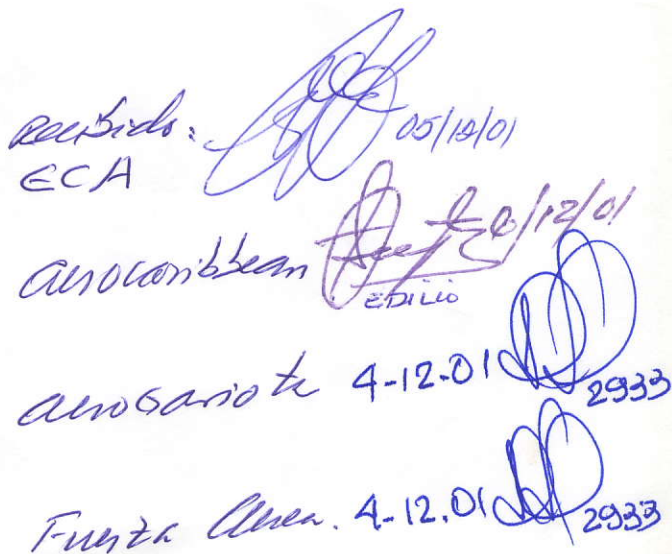 Recibido: 05/12/01
ECA
aerocaribbean 6/12/01
EDILIO
aerogaviota 4-12-01 2933
Fuerza Aerea. 4-12.01 2933